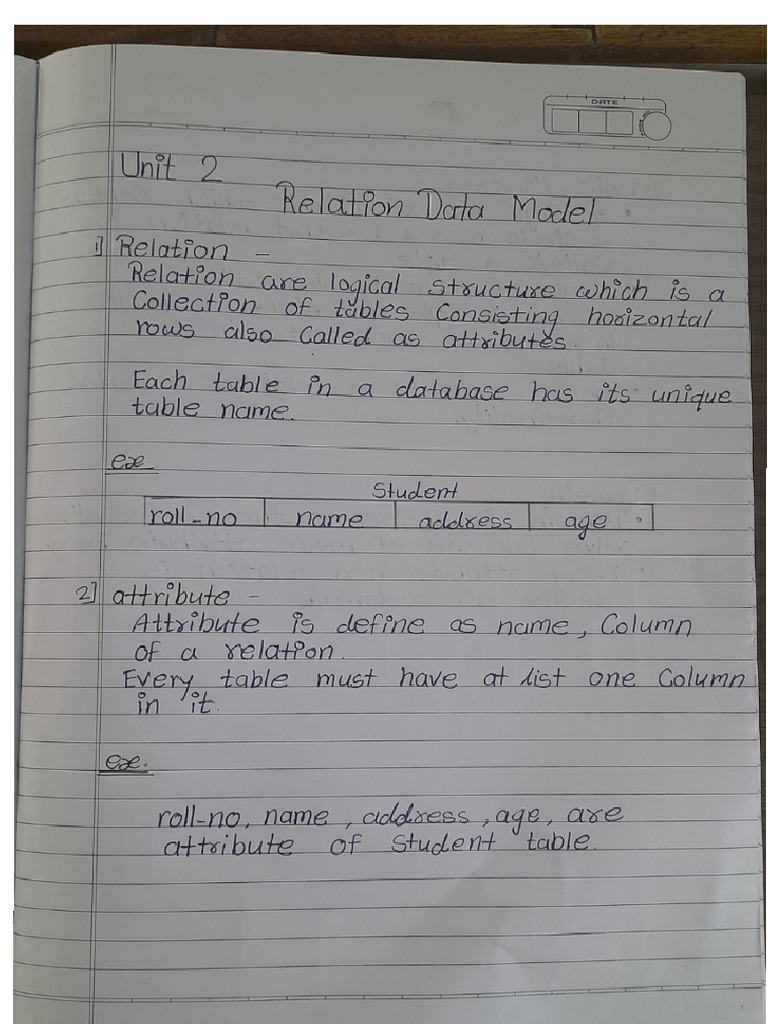 DATE
Unit 2
Relation Data Model.
1] Relation -
Relation are logical structure which is a
Collection of tables Consisting horizontal
rows also Called as attributes.
Each table in a database has its unique
table name.
ex
Student
roll-no name address age
2] attribute -
Attribute is define as name, Column
of a relation.
Every table must have at list one Column
in it.
ex.
roll-no, name, address, age, are
attribute of Student table.